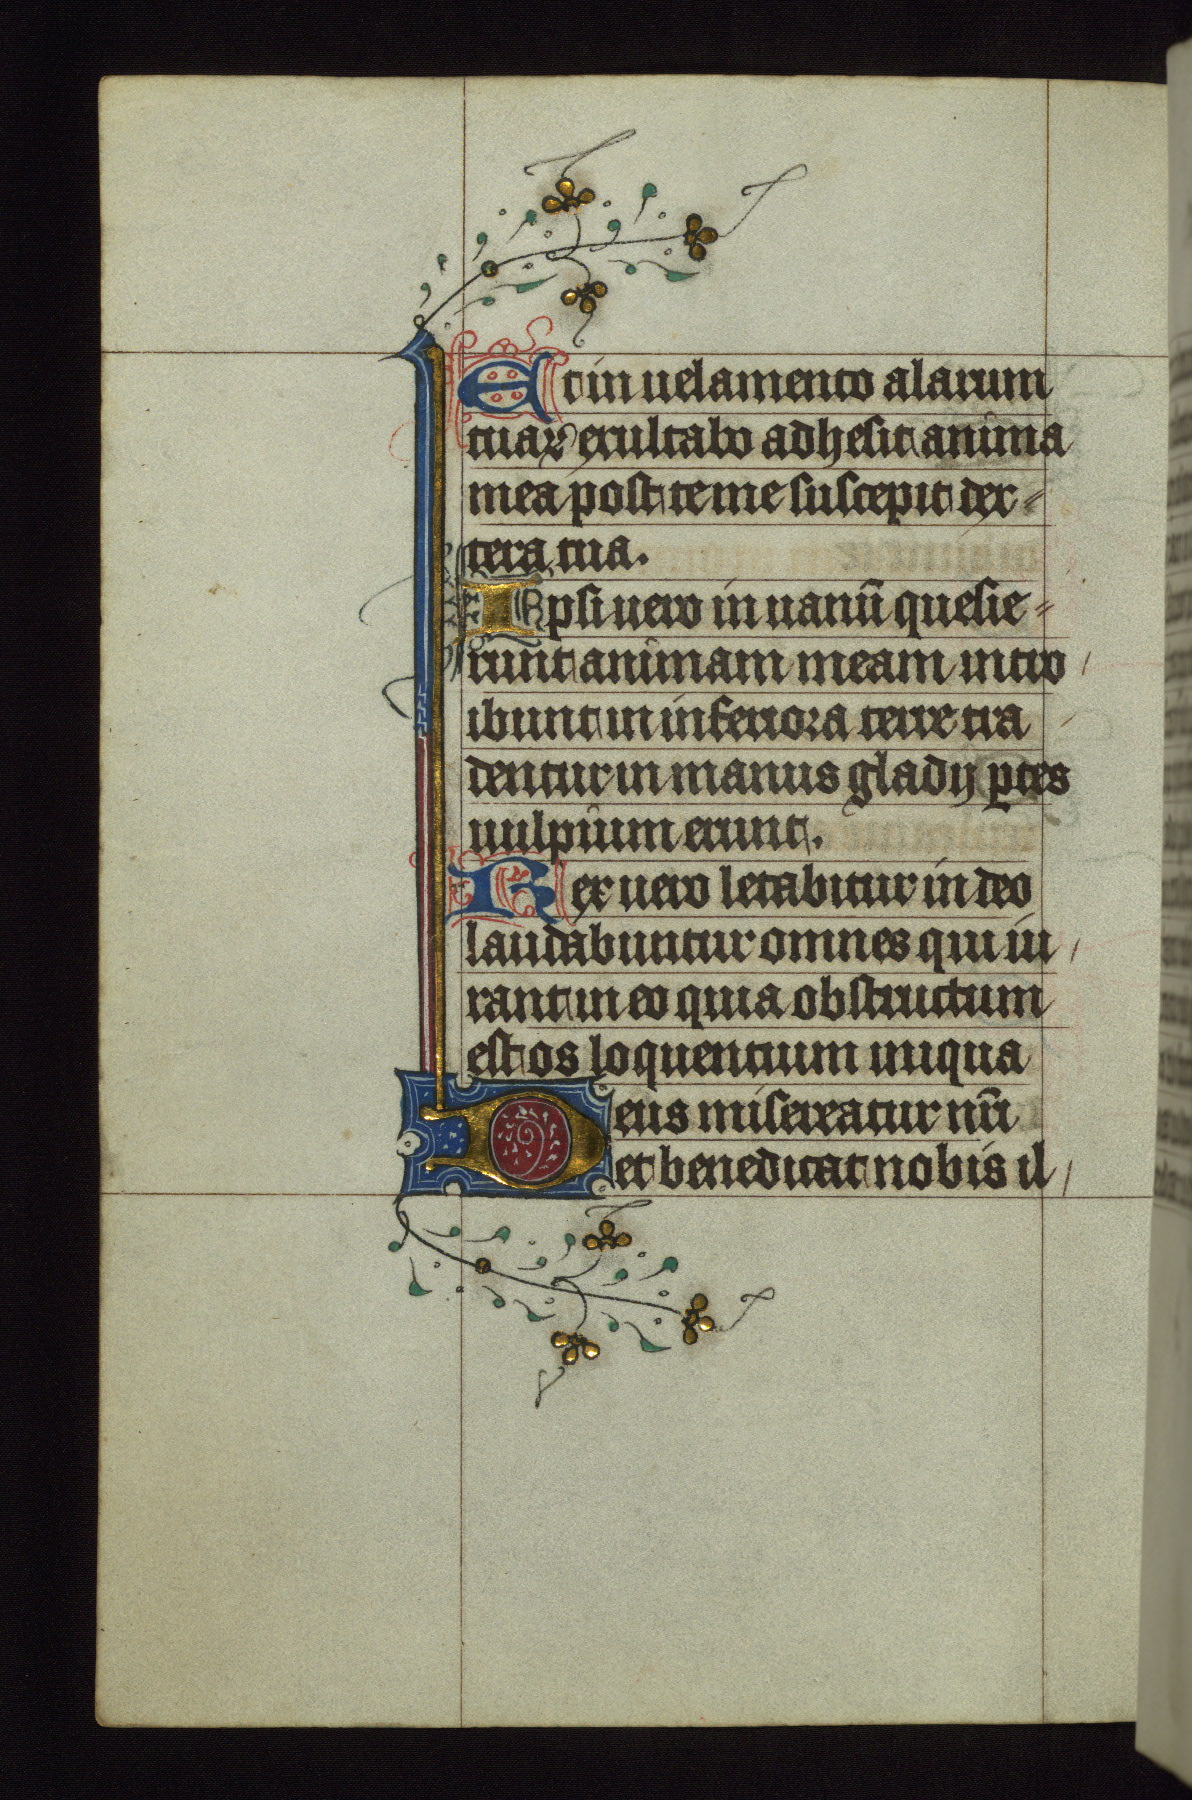 Et in uelamento alarum
tuaꝝ exultabo adhesit anima
mea post te me suscepit dex=
tera tua.
Ipsi uero in uanū quesie=
runt animam meam intro
ibunt in inferiora terre tra
dentur in manus gladij ptes
uulpium erunt.
Rex uero letabitur in deo
laudabuntur omnes qui iu
rant in eo quia obstructum
est os loquentium iniqua
Deus misereatur nr̄i
et benedicat nobis il